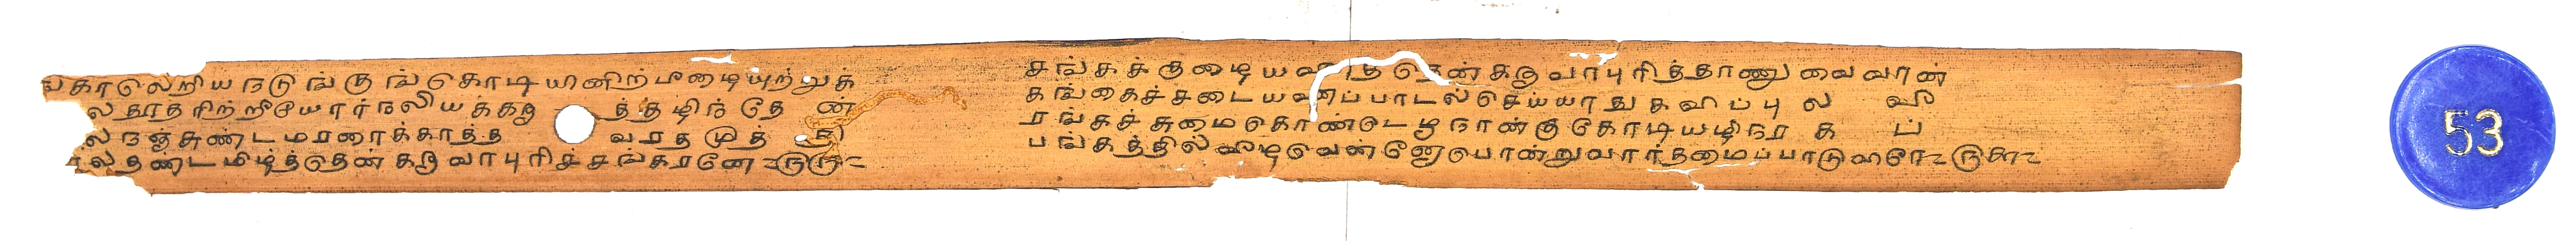 ங்காலெறியநடுங்குங்கொடியினிற்பீடையுற்றுக்
லதாதரிற்றீயோர்நலியக்கரு த்தழிந் தே ன்
ல நஞ்சுண்டமரரைக்காத்த வரத மூத் தி
லதண்டமிழ்த்தென் கருவாபுரிச்சங்கரனே
சங்கக்குழைய தென் கருவாபுரித்தாணுவை வான்
கங்கைச்சடைய பாடல்செய்யாது கவிப்பு ல வீ
ரங்கச்சுமைகொண்டெழுநான்குகோடியழிநர க ப்
பங்கத்தில் வீழுவென்னேயொன்றுவார்தமைப்பாடுவரே
53